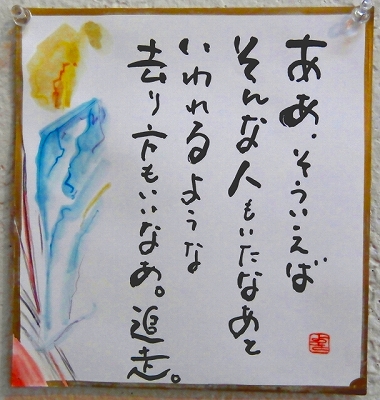 ああ、そういえば
そんな人もいたなあと
いわれるような
去り方もいいなあ。追走。